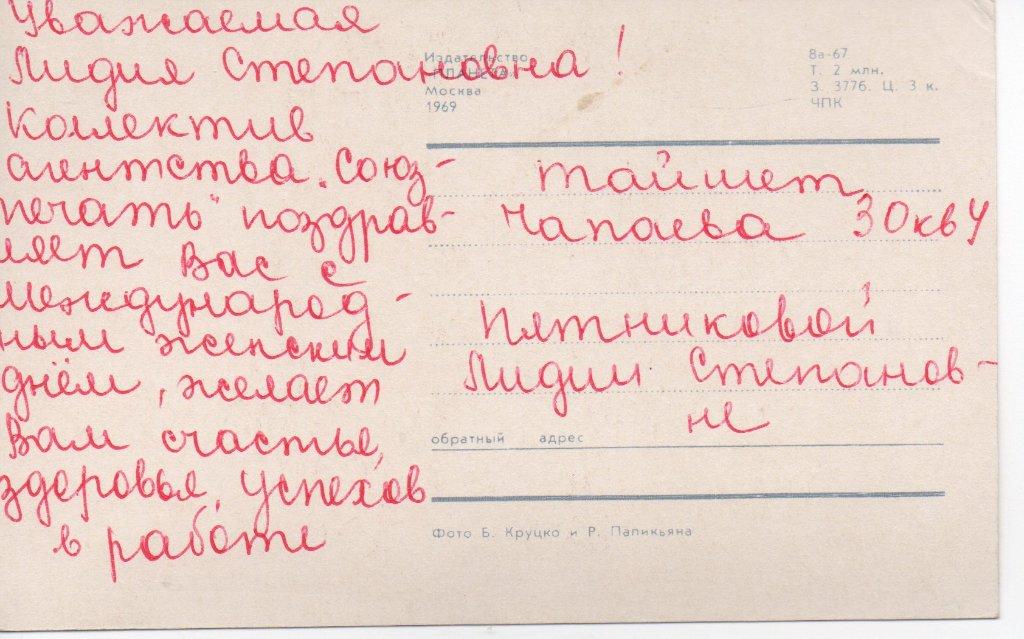 Уважаемая
Лидия Степановна!
Коллектив
агентства „Союз-
печать" поздрав-
ляет Вас с
Международ-
ным женским
днём, желает
Вам счастья,
здоровья, успехов
в работе
Издательство
„ПЛАНЕТА"
Москва
1969
8а-67
Т. 2 млн.
З. 3776. Ц. 3 к.
ЧПК
Тайшет
Чапаева 30кв4
Пятниковой
Лидии Степанов-
не
обратный адрес
Фото Б. Круцко и Р. Папикьяна